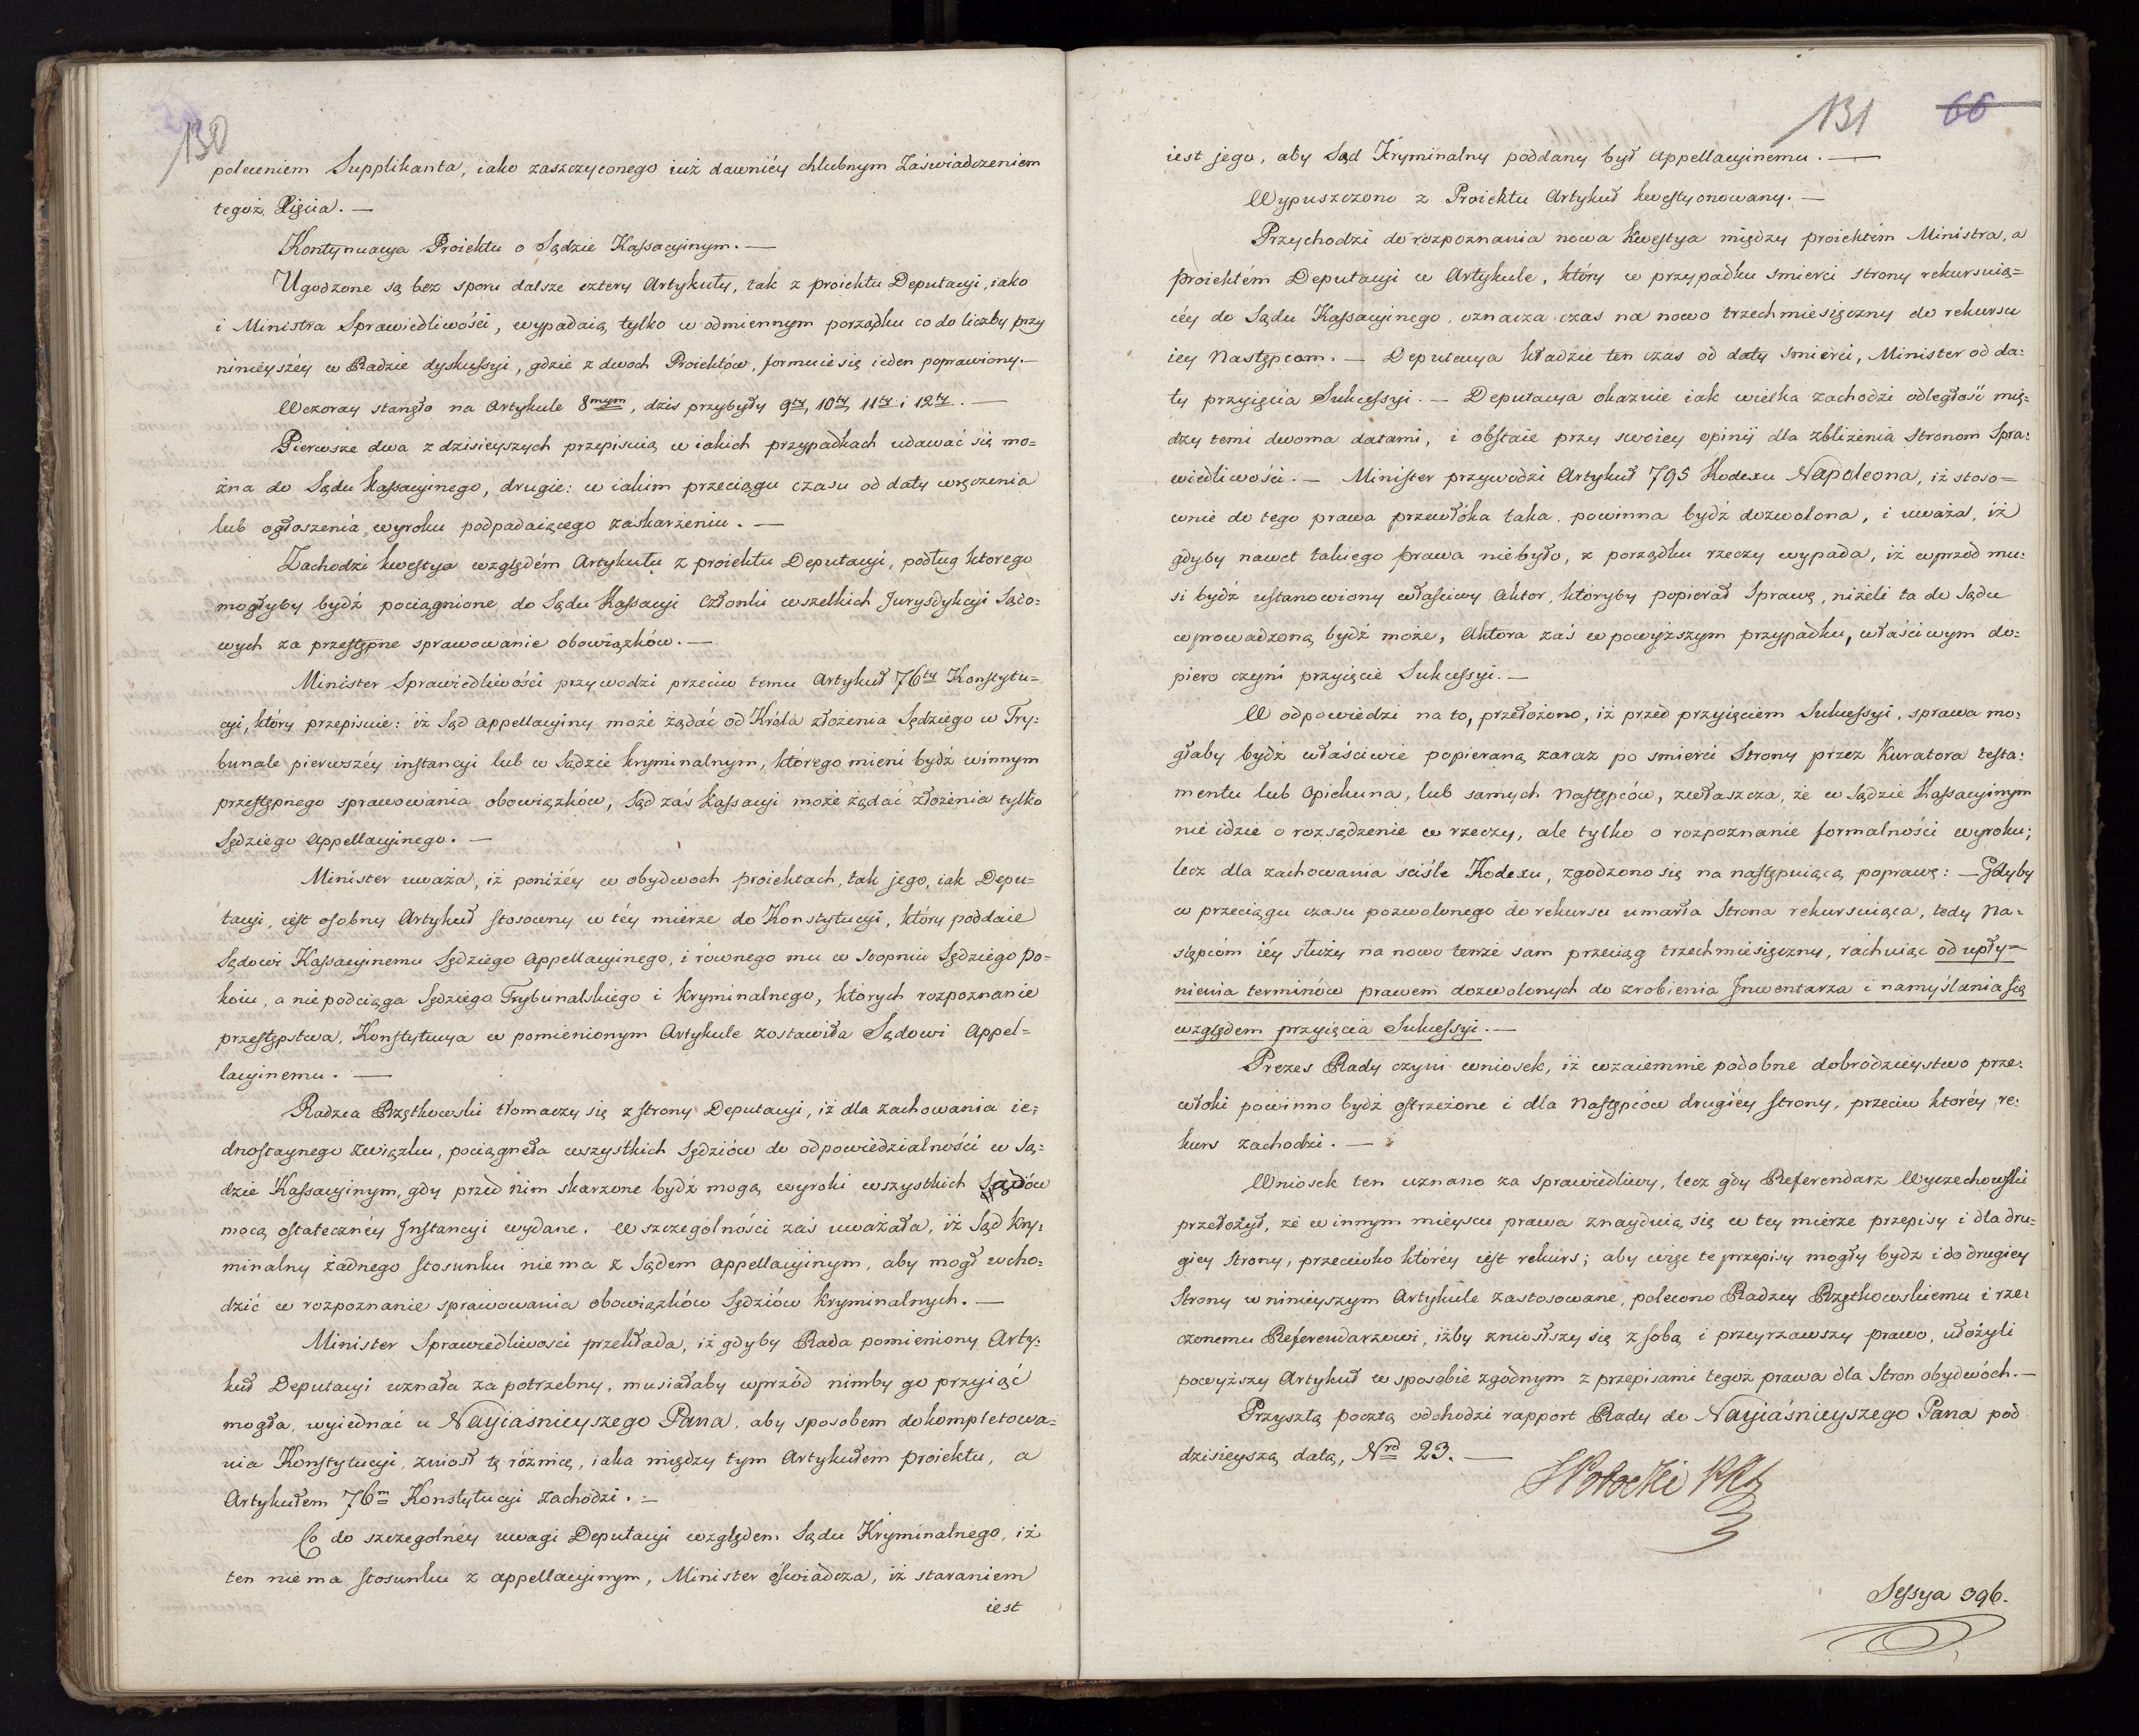 130
poleceniem Supplikanta, iako zaszczyconego iuż dawniéy chlubnym Zaświadczeniem
tegoż Xięcia. —
Kontynuacya Proiektu o Sądzie Kassacyinym. —
Ugodzone są bez sporu dalsze cztery Artykuły, tak z proiektu Deputacyi, iako
i Ministra Sprawiedliwości, wypadaią tylko w odmiennym porządku co do liczby przy
ninieyszéy w Radzie dyskussyi, gdzie z dwoch Proiektów, formuie się ieden poprawiony. —
Wczoray stanęło na Artykule 8mym, dzis przybyły 9ty, 10ty, 11ty i 12ty. —
Pierwsze dwa z dzisieyszych przepisuią w iakich przypadkach udawać się mo=
żna do Sądu Kassacyinego, drugie: w iakim przeciągu czasu od daty wręczenia
lub ogłoszenia wyroku podpadaiącego zaskarżeniu. —
Zachodzi kwestya względém Artykułu z proiektu Deputacyi, podług ktorego
mogłyby bydź pociągnione do Sądu Kassacyi Członki wszelkich Jurysdykcyi Sądo=
wych za przestępne sprawowanie obowiązków. —
Minister Sprawiedliwości przywodzi przeciw temu Artykuł 76ty Konstytu=
cyi, który przepisuie: iż Sąd Appellacyiny może żądać od Króla złożenia Sędziego w Try=
bunale pierwszéy instancyi lub w Sądzie kryminalnym, którego mieni bydź winnym
przestępnego sprawowania obowiązków, Sąd zaś Kassacyi może żądać złożenia tylko
Sędziego Appellacyinego. —
Minister uważa, iż poniżéy w obydwoch proiektach, tak jego, iak Depu=
tacyi, iest osobny Artykuł stosowny w téy mierze do Konstytucyi, który poddaie
Sądowi Kassacyinemu Sędziego Appellacyinego, i równego mu w stopniu Sędziego po=
koiu, a nie podciąga Sędziego Trybunalskiego i kryminalnego, których rozpoznanie
przestępstwa, Konstytucya w pomienionym Artykule zostawiła Sądowi Appel=
lacyinemu. —
Radzca Rzętkowski tłomaczy się z strony Deputacyi, iż dla zachowania ie=
dnostaynego związku, pociągnęła wszystkich Sędziów do odpowiedzialności w Są=
dzie Kassacyinym, gdy przed nim skarżone bydź mogą wyroki wszystkich Sądów
mocą ostatecznéy Jnstancyi wydane. W szczególności zaś uważała, iż Sąd kry=
minalny żadnego stosunku nie ma z Sądem Appellacyinym, aby mogł wcho=
dzić w rozpoznanie sprawowania obowiązków Sędziów Kryminalnych. —
Minister Sprawiedliwości przekłada, iż gdyby Rada pomieniony Arty=
kuł Deputacyi uznała za potrzebny, musiałaby wprzód nimby go przyiąć
mogła, wyiednać u Nayiaśnieyszego Pana, aby sposobem dokompletowa=
nia Konstytucyi, zniosł tę różnicę, iaka między tym Artykułem proiektu, a
Artykułem 76m Konstytucyi zachodzi. —
Co do szczególnéy uwagi Deputacyi względem Sądu Kryminalnego, iż
ten niema stosunku z Appellacyinym, Minister oświadcza, iż staraniem
iest
131 66
iest jego, aby Sąd Kryminalny poddany był Appellacyinemu. —
Wypuszczono z Proiektu Artykuł kwestyonowany. —
Przychodzi do rozpoznania nowa kwestya między proiektém Ministra, a
proiektém Deputacyi w Artykule, który w przypadku smierci strony rekursuią=
céy do Sądu Kassacyinego, oznacza czas na nowo trzechmiesięczny do rekursu
iey Następcom. — Deputacya kładzie ten czas od daty smierci, Minister od da=
ty przyięcia Sukcessyi. — Deputacya okazuie iak wielka zachodzi odległość mię=
dzy temi dwoma datami, i obstaie przy swoiey opinij dla zbliżenia Stronom Spra=
wiedliwości. — Minister przywodzi Artykuł 795 Kodexu Napoleona, iż stoso=
wnie do tego prawa przewłóka taka, powinna bydź dozwolona, i uważa, iż
gdyby nawet takiego prawa niebyło, z porządku rzeczy wypada, iż wprzód mu=
si bydź ustanowiony właściwy Aktor, któryby popierał Sprawę, niżeli ta do Sądu
wprowadzoną bydź może, Aktora zaś w powyższym przypadku, właściwym do=
piero czyni przyięcie Sukcessyi. —
W odpowiedzi na to, przełożono, iż przed przyięciem Sukcessyi, sprawa mo=
głaby bydź właściwie popieraną zaraz po smierci Strony przez Kuratora testa=
mentu lub Opiekuna, lub samych Następców, zwłaszcza, że w Sądzie Kassacyinym
nie idzie o rozsądzenie w rzeczy, ale tylko o rozpoznanie formalności wyroku;
lecz dla zachowania ściśle Kodexu, zgodzono się na następuiącą poprawę: — Gdyby
w przeciągu czasu pozwolonego do rekursu umarła Strona rekursuiąca, tedy Na=
stępcom iéy służy na nowo tenże sam przeciąg trzechmiesięczny, rachuiąc od upły=
nienia terminów prawem dozwolonych do zrobienia Jnwentarza i namyślania się
względem przyięcia Sukcessyi. —
Prezes Rady czyni wniosek, iż wzaiemnie podobne dobrodzieystwo prze=
włoki powinno bydź ostrzeżone i dla Następców drugiéy strony, przeciw któréy re=
kurs zachodzi. —
Wniosek ten uznano za sprawiedliwy, lecz gdy Referendarz Wyczechowski
przełożył, że w innym mieyscu prawa znayduią się w tey mierze przepisy i dla dru=
giey Strony, przeciwko któréy iest rekurs; aby więc te przepisy mogły bydź i do drugiey
Strony w ninieyszym Artykule zastosowane, polecono Radzcy Rzętkowskiemu i rze=
czonemu Referendarzowi, iżby zniosłszy się z sobą i przeyrzawszy prawo, ułożyli
powyższy Artykuł w sposobie zgodnym z przepisami tegoż prawa dla Stron obydwóch. —
Przyszłą pocztą odchodzi rapport Rady do Nayiaśnieyszego Pana pod
dzisieyszą datą, Nro 23. —
SPotocki
Sessya 396.